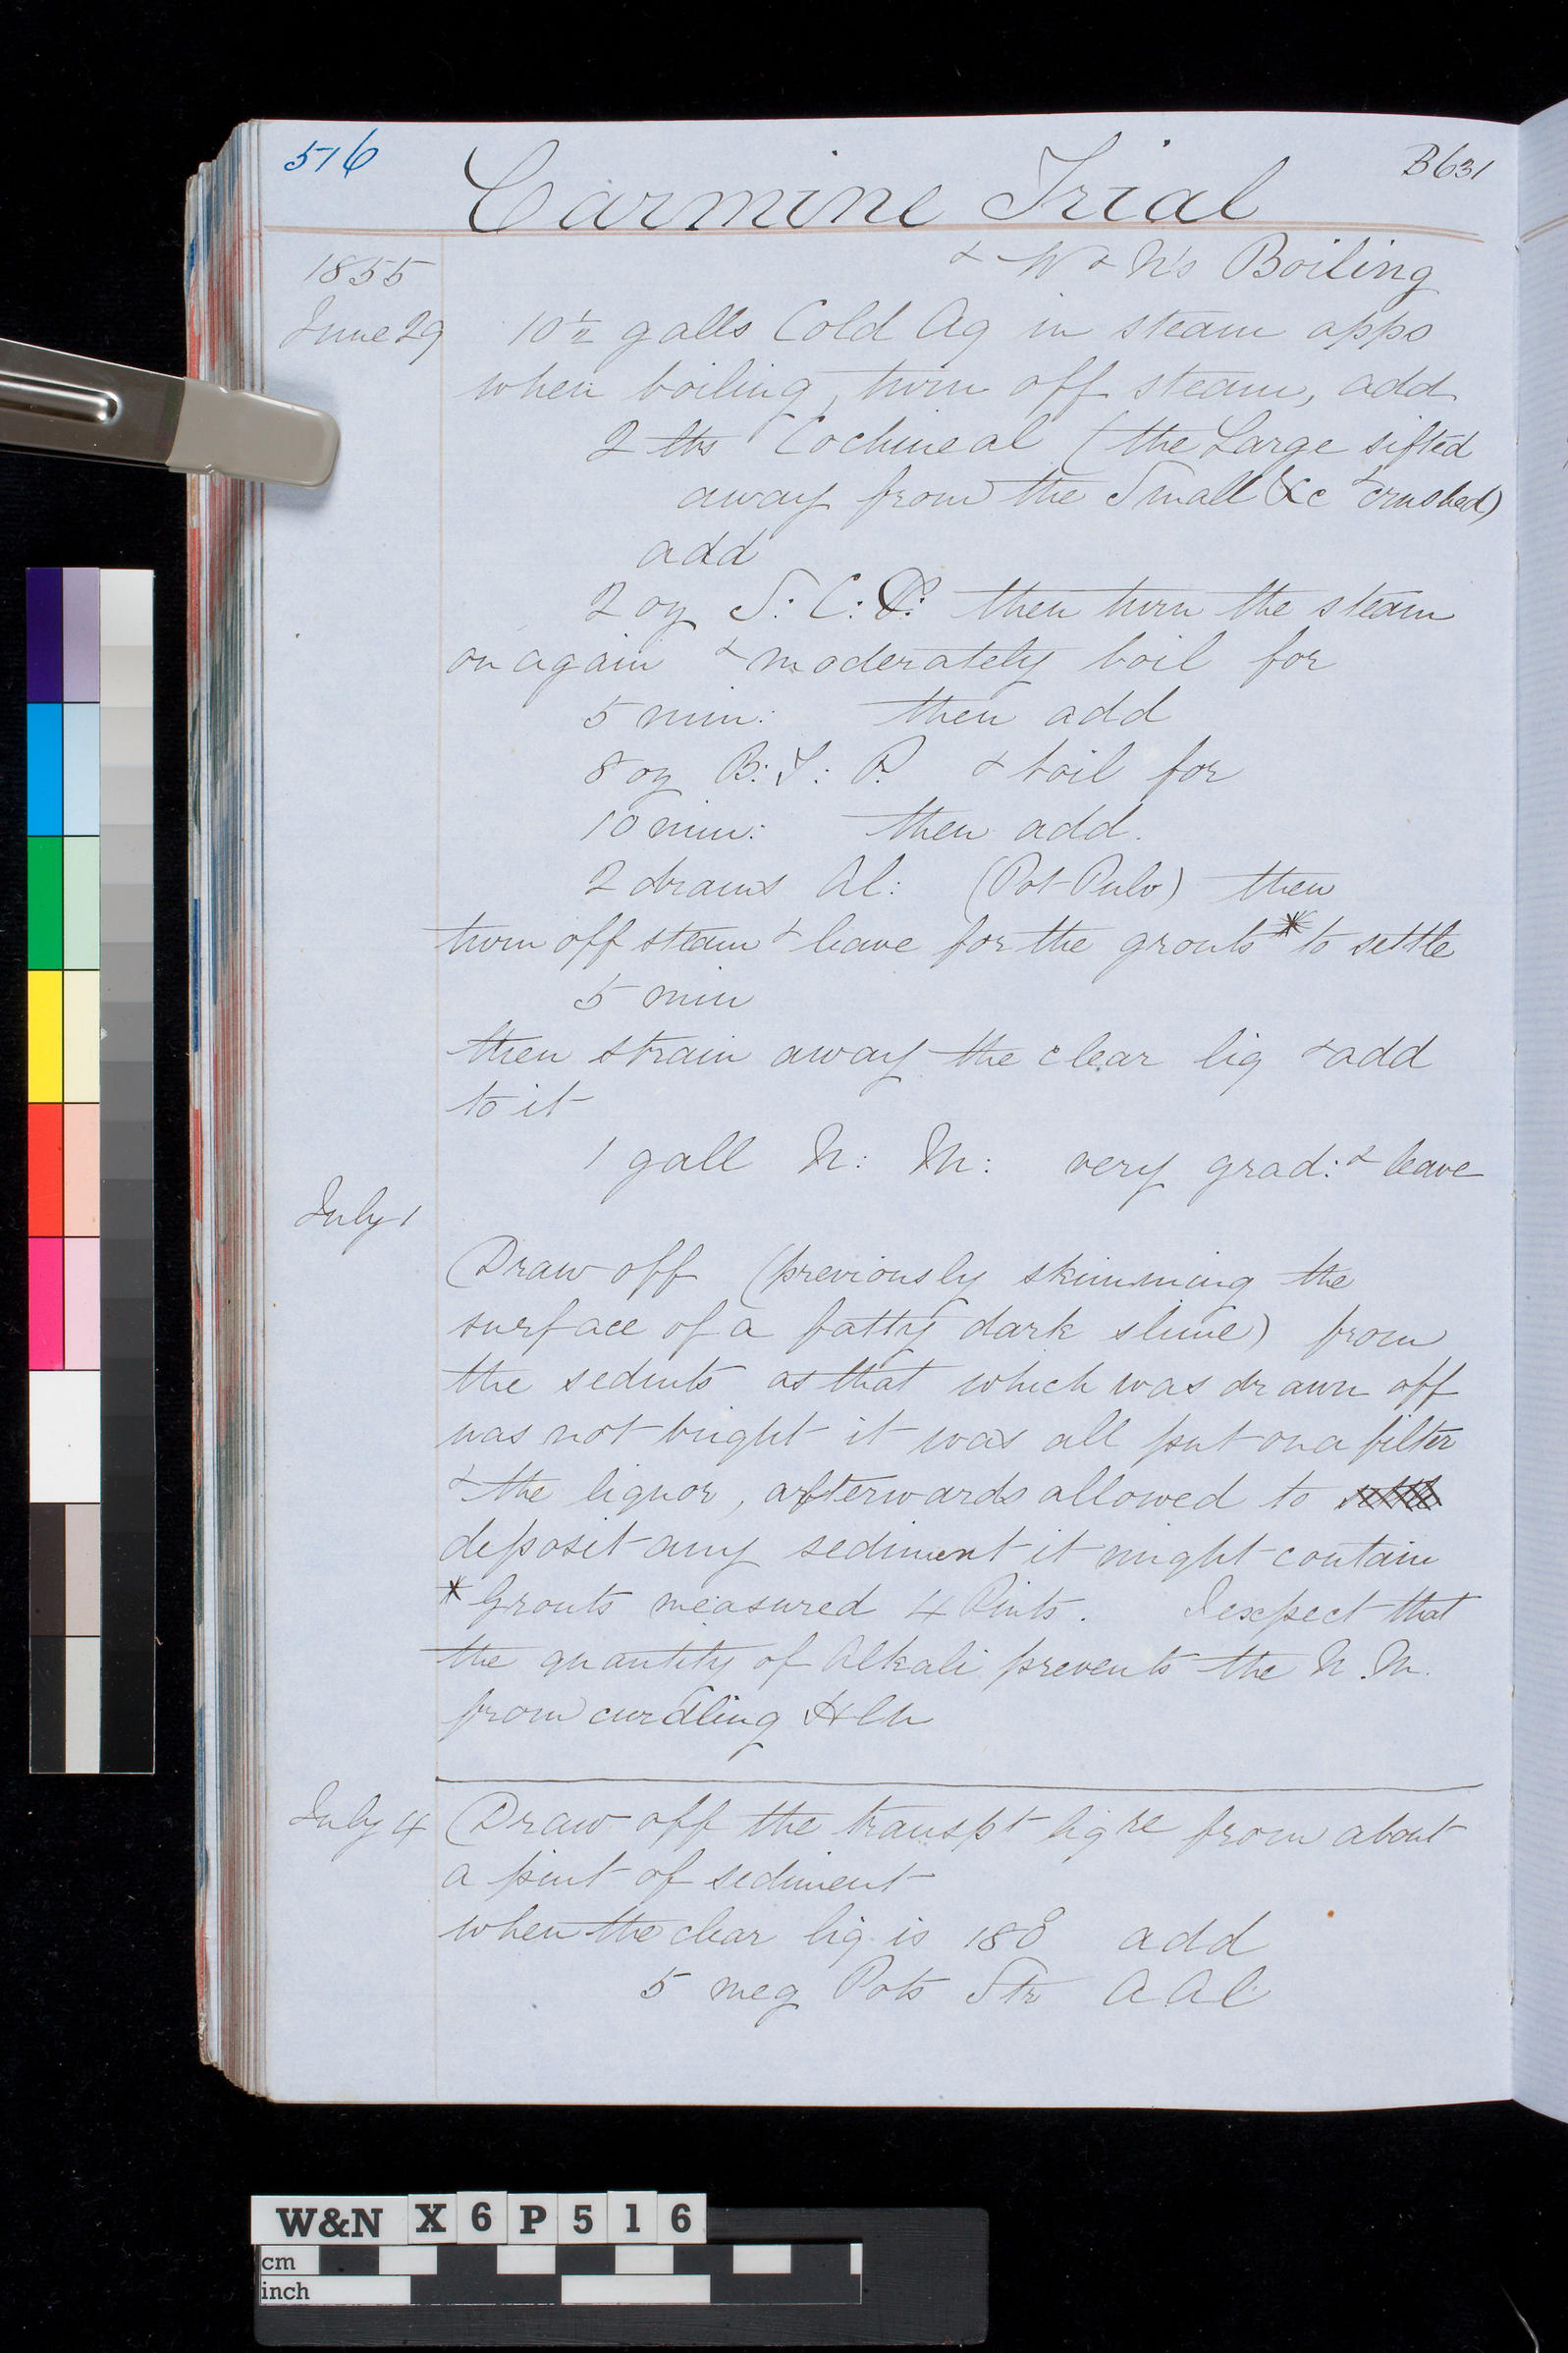 516
B631
Carmine Trial
& W & N's Boiling
1855
June 29 10½ galls Cold Aq in steam apps
when boiling, turn off steam, add
2 lbs Cochineal (the Large sifted
away from the Small &c & crushed)
add
2 oz S: C: P: then turn the steam
on again & moderately boil for
5 min: then add
8 oz B: T: P. & boil for
10 min: then add.
2 drams Al: (Pot Pulv) then
turn off steam & leave for the grouts * to settle
5 min
then strain away the clear liq & add
to it
1 gall N: M: very grad: & leave
July 1
Draw off (previously skimming the
surface of a fatty dark slime) from
the sedints as that which was drawn off
was not bright it was all put on a filter
& the liquor, afterwards allowed to
deposit any sediment it might contain
* Grouts measured 4 Pints. I expect that
the quantity of Alkali prevents the N. M.
from curdling
July 4 Draw off the transpt liqre from about
a pint of sediment
when the clear liq is 180° add
5 meg Pots Str A Al
W&N X6P516
cm
inch